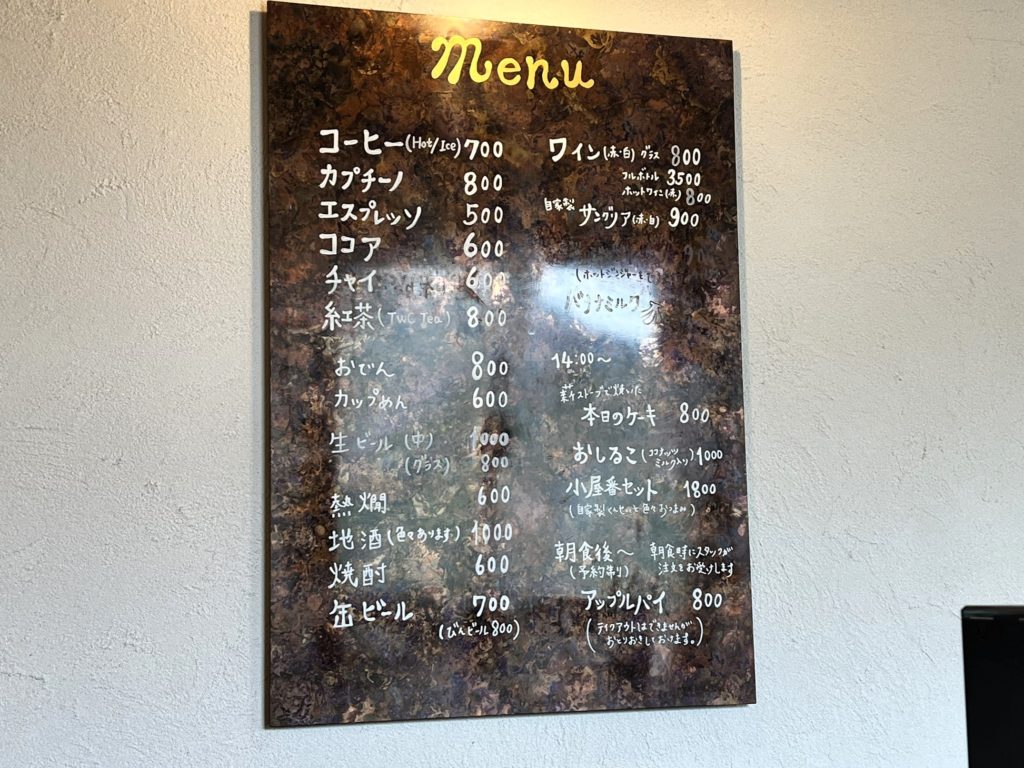 Menu
コーヒー(Hot/Ice) 700
カプチーノ 800
エスプレッソ 500
ココア 600
チャイ 600
紅茶(TWG Tea) 800
おでん 800
カップめん 600
生ビール(中) 1000
(グラス) 800
熱燗 600
地酒(色々あります) 1000
焼酎 600
缶ビール 700
(びんビール 800)
ワイン(赤・白) グラス 800
フルボトル 3500
ホットワイン(赤) 800
自家製 サングリア(赤・白) 900
バナナミルク
14:00〜
薪ストーブで焼いた
本日のケーキ 800
おしるこ(ココナッツミルク入り) 1000
小屋番セット 1800
(自家製くんせいと色々おつまみ)
朝食後〜 朝食時にスタッフが
(予約制り) 注文をお受けします
アップルパイ 800
(テイクアウトはできませんが
おとりおきしておけます。)